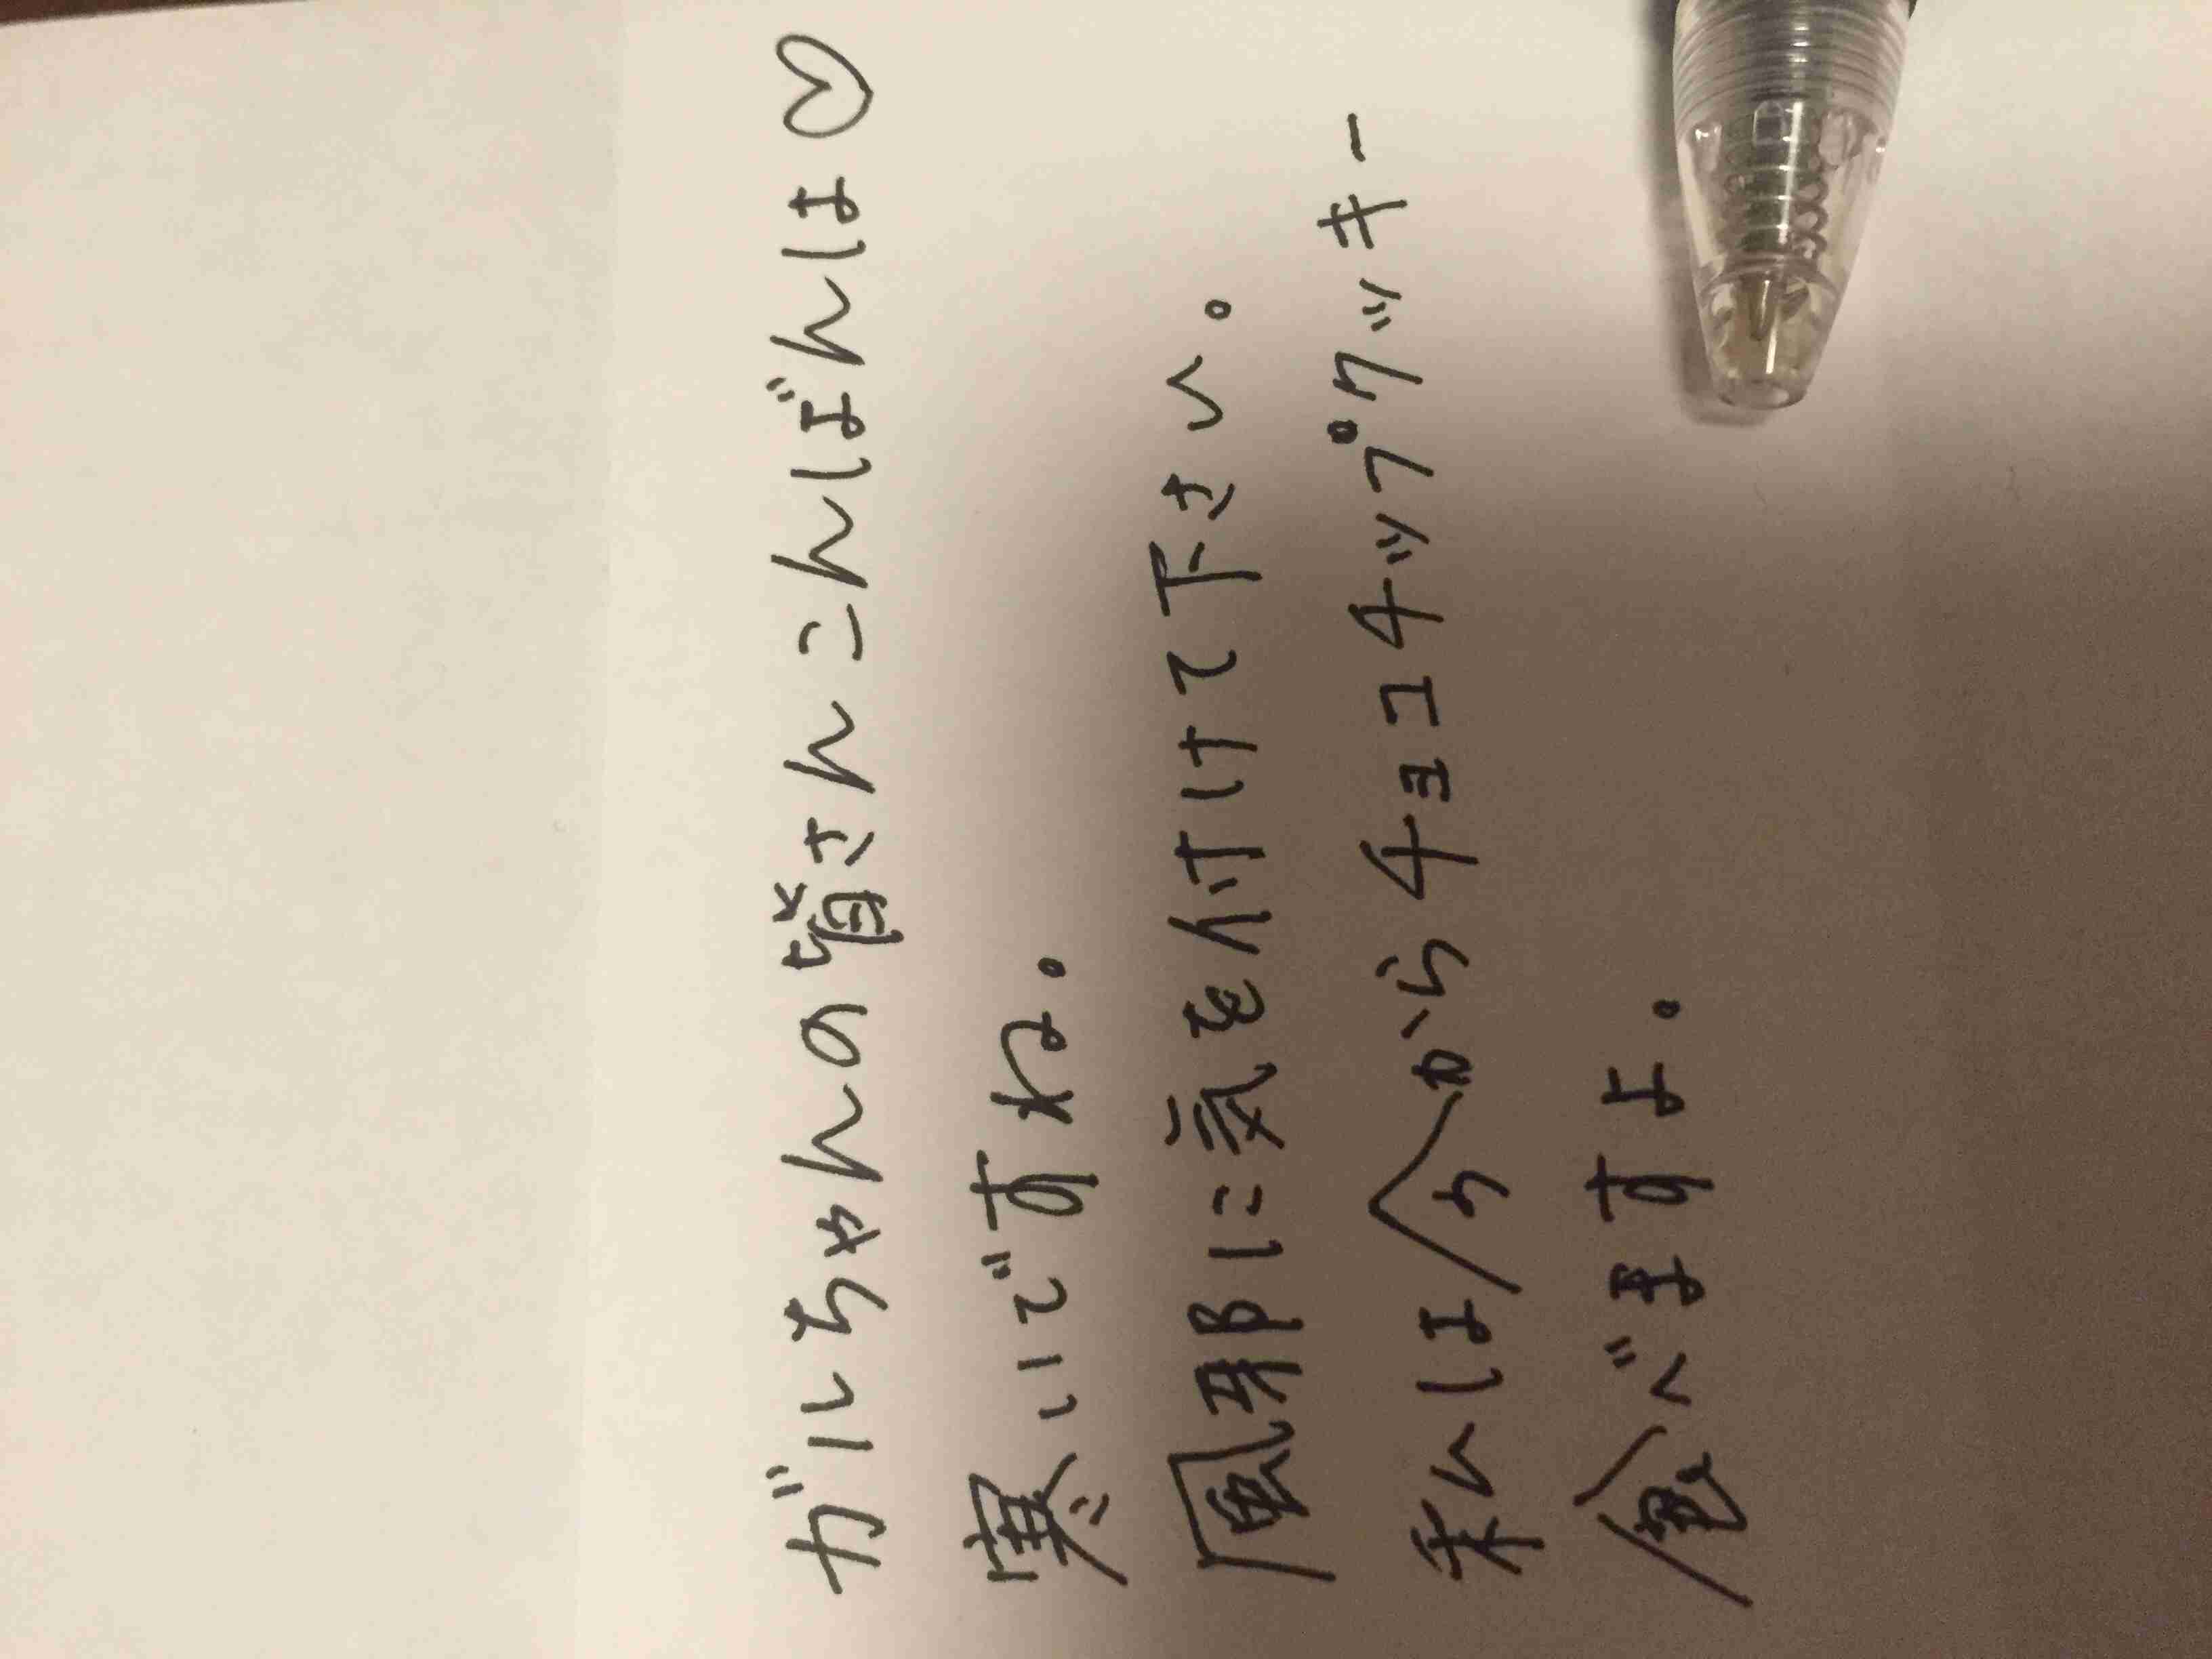 ガルちゃんの皆さんこんばんは♡
寒いですね。
風邪に気を付けて下さい。
私は今からチョコチップクッキー
食べますよ。